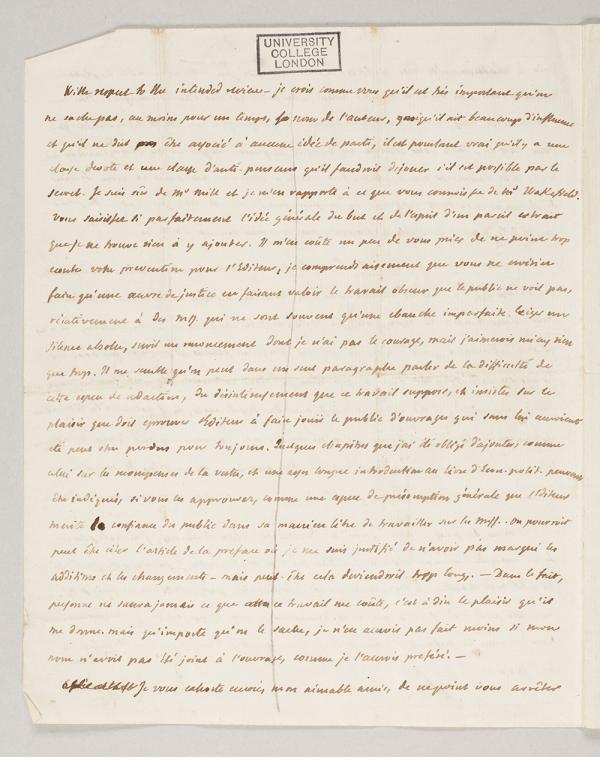 UNIVERSITY
COLLEGE
LONDON
With respect to the intended review - je crois comme vous qu'il est très important qu'on
ne sache pas, au moins pour un temps, le nom de l'auteur, quoiqu'il ait beaucoup d'influence
et qu'il ne doit pas être associé à aucune idée de parti, il est pourtant vrai qu'il y a une
classe devote et une classe d'anti-penseurs qu'il faudroit dejouer s'il est possible par le
secret. Je suis sûr de Mr Mill et je m'en rapporte à ce que vous connoissez de Mr Wakefield.
Vous saisissez si parfaitement l'idée générale du but et de l'esprit d'un pareil extrait
que je ne trouve rien à y ajouter. Il m'en coûte un peu de vous prier de ne point trop
ecouter votre prevention pour l'Editeur, je comprends aisement que vous ne croiriez
faire qu'une œuvre de justice en faisant valoir le travail obscur que le public ne voit pas,
relativement à des Mss. qui ne sont souvent qu'une ebauche imparfaite. Exiger un
silence absolu, seroit un renoncement dont je n'ai pas le courage, mais j'aimerois mieux rien
que trop. Il me semble qu'on peut dans un seul paragraphe parler de la difficulté de
cette espece de redaction, du désinteressement que ce travail suppose, et insister sur le
plaisir que doit eprouver l'Editeur à faire jouir le public d'ouvrages qui sans lui auroient
été peut etre perdus pour toujours. Quelques chapitres que j'ai été obligé d'ajouter, comme
celui sur les recompenses de la vertu, et une assez longue introduction au livre d'Econ. polit. peuvent
être indiqués, si vous les approuvez, comme une espece de présomption générale que l'Editeur
merite la confiance du public dans sa maniere libre de travailler sur les Mss. On pourroit
peut être citer l'article de la préface où je me suis justifié de n'avoir pas marqué les
additions et les changements - mais peut-être cela deviendroit trop long. - Dans le fait,
personne ne saura jamais ce que ce travail me coûte, c'est à dire le plaisir qu'il
me donne. mais qu'importe qu'on le sache, je n'en aurois pas fait moins si mon
nom n'avoit pas été joint à l'ouvrage, comme je l'aurois préféré. -
Je vous exhorte encore, mon aimable amie, de ne point vous arrêter